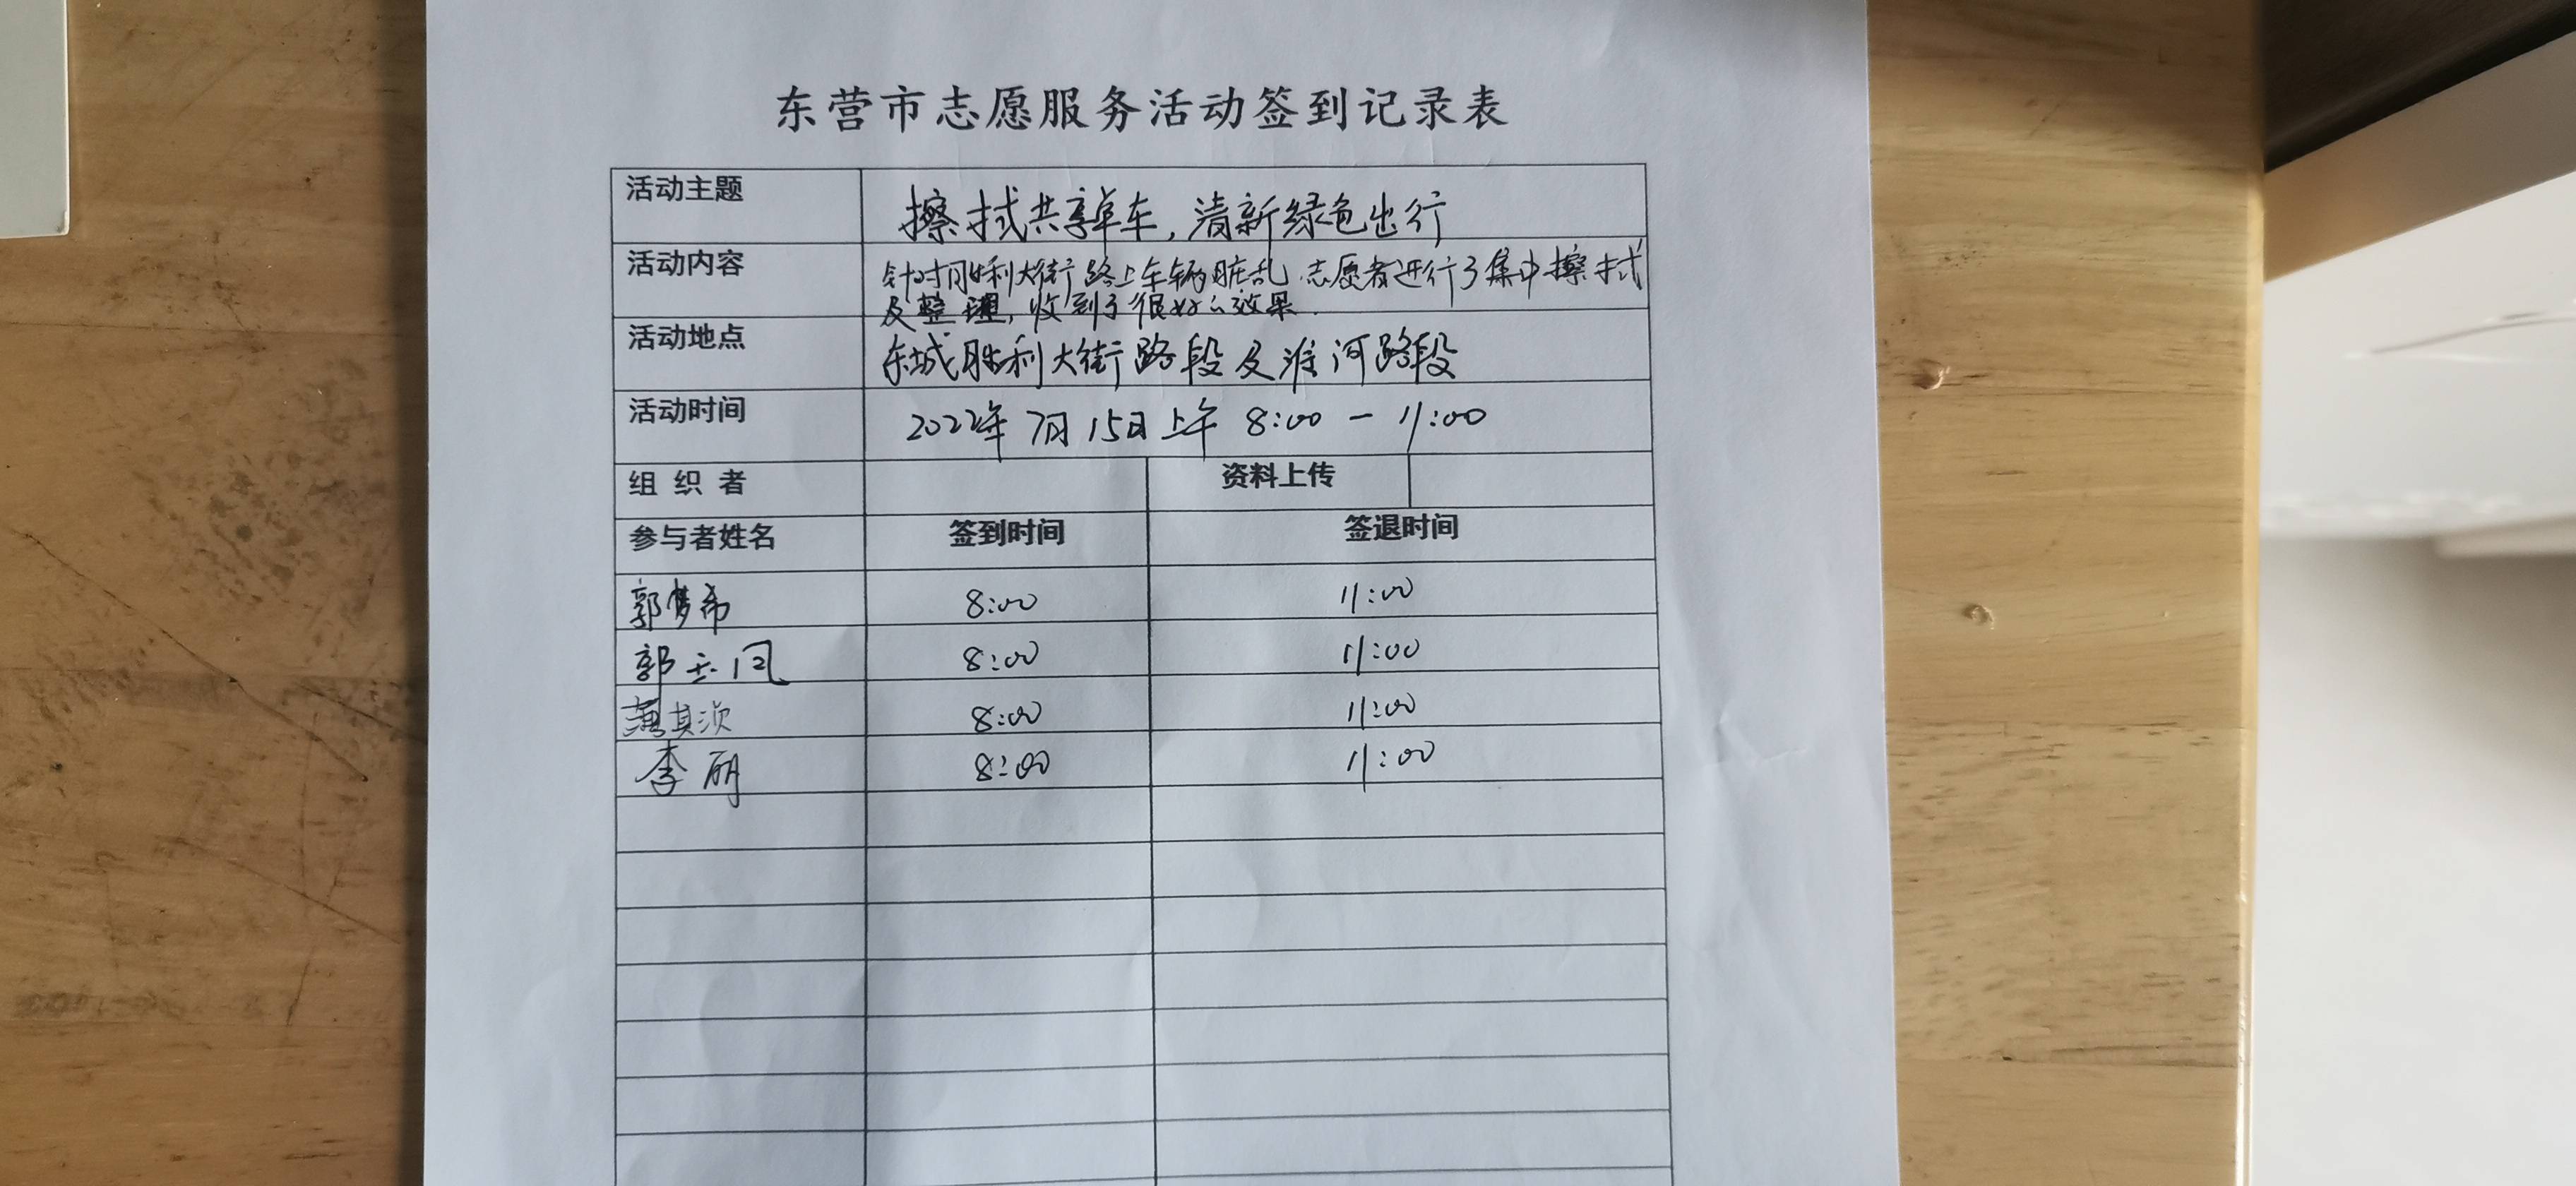 东营市志愿服务活动签到记录表
活动主题 擦拭共享单车，清新绿色出行
活动内容 针对胜利大街路上车辆脏乱，志愿者进行了集中擦拭
及整理，收到了很好的效果．
活动地点 东城胜利大街路段及淮河路段
活动时间 2022年7月15日上午 8:00－11:00
组织者 资料上传
参与者姓名 签到时间 签退时间
郭梦希 8:00 11:00
郭 8:00 11:00
其 8:00 11:00
李丽 8:00 11:00